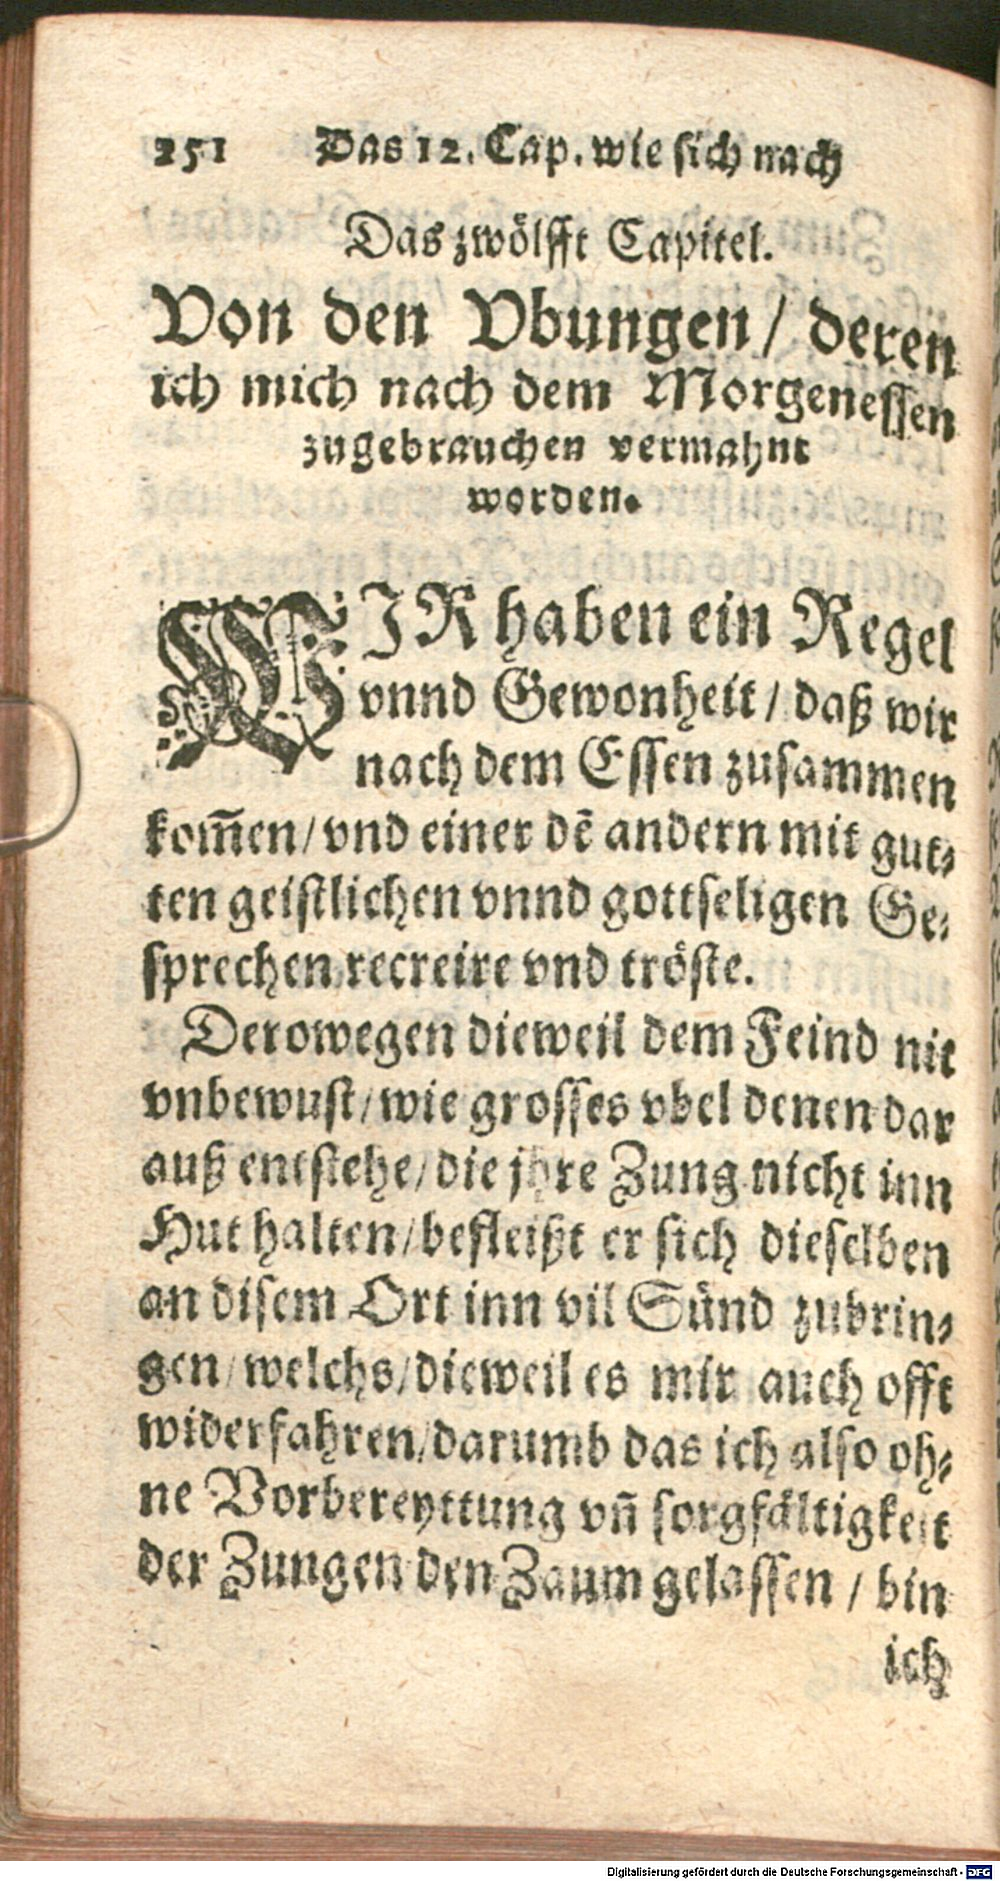 251 Das 12. Cap. wie sich nach
Das zwölfft Capitel.
Von den Vbungen / deren
ich mich nach dem Morgenessen
zugebrauchen vermahnt
worden.
WIR haben ein Regel
vnnd Gewonheit / daß wir
nach dem Essen zusammen
kom̃en / vnd einer dẽ andern mit gut⸗
ten geistlichen vnnd gottseligen Ge⸗
sprechen recreire vnd tröste.
Derowegen dieweil dem Feind nit
vnbewust / wie grosses vbel denen dar
auß entstehe / die jhre Zung nicht inn
Hut halten / befleißt er sich dieselben
an disem Ort inn vil Sünd zubrin⸗
gen / welchs / dieweil es mir auch offt
widerfahren / darumb das ich also oh⸗
ne Vorbereyttung vñ sorgfältigkeit
der Zungen den Zaum gelassen / bin
ich
Digitalisierung gefördert durch die Deutsche Forschungsgemeinschaft - DFG